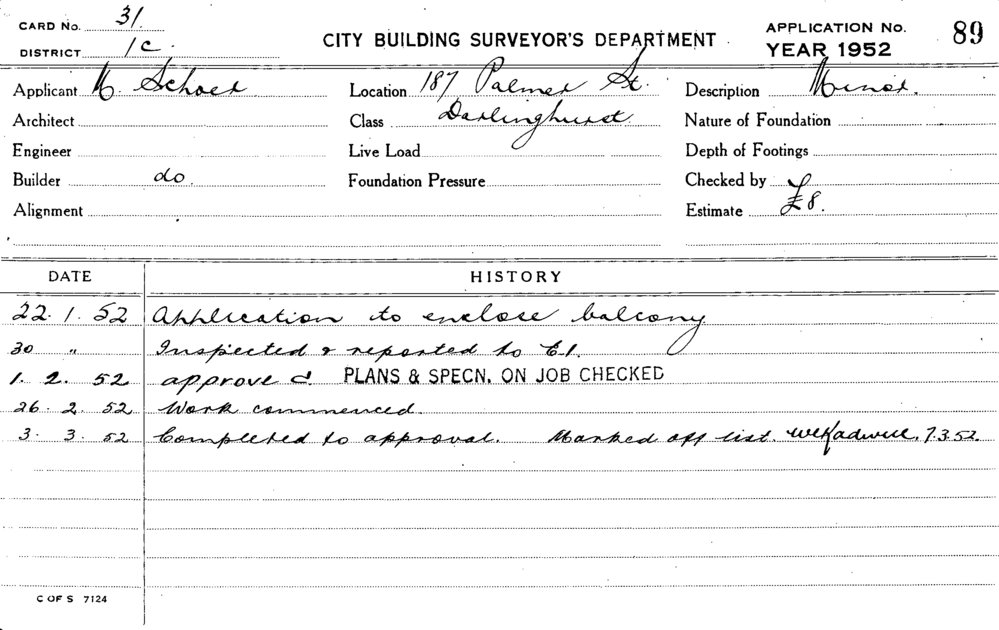 CARD No. 31.
DISTRICT 1c.
CITY BUILDING SURVEYOR'S DEPARTMENT
APPLICATION No. 89
YEAR 1952
Applicant Location 187 Palmer St. Description Minor.
Architect Class Darlinghurst Nature of Foundation
Engineer Live Load Depth of Footings
Builder do. Foundation Pressure Checked by
Alignment Estimate £8.
DATE HISTORY
22.1.52 Application to enclose balcony
30 " Inspected & reported to E1.
1.2.52 approved. PLANS & SPECN. ON JOB CHECKED
26.2.52 Work commenced.
3.3.52 Completed to approval. Marked off list. 7.3.52.
C OF S 7124